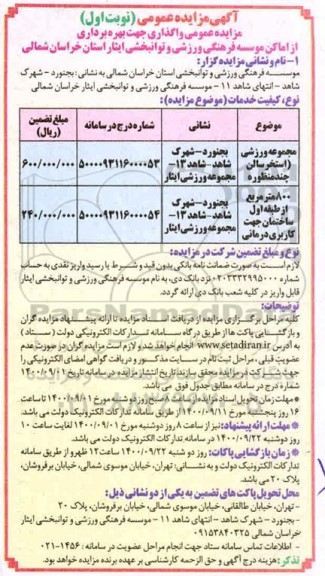 آگهی مزایده عمومی (نوبت اول)
مزایده عمومی واگذاری جهت بهره برداری
از اماکن موسسه فرهنگی ورزشی و توانبخشی ایثار استان خراسان شمالی
۱- نام و نشانی مزایده گزار:
موسسه فرهنگی ورزشی و توانبخشی استان خراسان شمالی به نشانی: بجنورد - شهرک
شاهد - انتهای شاهد ۱۱ - موسسه فرهنگی ورزشی و توانبخشی ایثار خراسان شمالی
نوع، کیفیت خدمات (موضوع مزایده):
موضوع نشانی شماره درج در سامانه مبلغ تضمین (ریال)
مجموعه ورزشی (استخر سالن چندمنظوره بجنورد - شهرک شاهد - شاهد ۱۳ - مجموعه ورزشی ایثار ۵۰۰۰۰۹۳۱۱۶۰۰۰۰۵۳ ۶۰۰/۰۰۰/۰۰۰
۸۰۰ متر مربع از طبقه اول ساختمان جهت کاربری درمانی بجنورد - شهرک شاهد - شاهد ۱۳ - مجموعه ورزشی ایثار ۵۰۰۰۰۹۳۱۱۶۰۰۰۰۵۴ ۲۴۰/۰۰۰/۰۰۰
نوع و مبلغ تضمین شرکت در مزایده:
لازم است به صورت ضمانت نامه بانکی بدون قید و شرط یا رسید واریز نقدی به حساب
شماره ۰۲۰۳۳۳۲۹۹۵۰۰۰ نزد بانک دی، به نام موسسه فرهنگی ورزشی و توانبخشی ایثار
قابل واریز در کلیه شعب بانک دی ارائه گردد.
توضیحات:
کلیه مراحل برگزاری مزایده از دریافت اسناد مزایده تا ارائه پیشنهاد مزایده گران
و بازگشایی پاکت ها از طریق درگاه سامانه تدارکات الکترونیکی دولت (ستاد) به
آدرس www.setadiran.ir انجام خواهد شد و لازم است مزایده گران در صورت عدم
عضویت قبلی، مراحل ثبت نام در سایت مذکور و دریافت گواهی امضای الکترونیکی را
جهت شرکت در مزایده محقق سازند تاریخ انتشار مزایده در سامانه تاریخ ۱۴۰۰/۰۹/۰۱
شماره درج در سامانه مطابق جدول فوق می باشد.
* مهلت زمان تحویل اسناد مزایده از سایت: از صبح روز دوشنبه مورخ ۱۴۰۰/۰۹/۰۱ تا ساعت
۱۶ روز پنجشنبه مورخ ۱۴۰۰/۰۹/۱۱ از طریق سامانه تدارکات الکترونیک دولت می باشد.
* مهلت ارائه پیشنهاد: نیز از ساعت ۸ روز دوشنبه مورخ ۱۴۰۰/۰۹/۰۱ لغایت ساعت ۱۰
روز دوشنبه ۱۴۰۰/۰۹/۲۲ در سامانه تدارکات الکترونیک دولت می باشد.
* زمان بازگشایی پاکات: روز دو شنبه ۱۴۰۰/۰۹/۲۲ ساعت ۱۲ ظهر و از طریق سامانه
تدارکات الکترونیک دولت و به نشانی: تهران، خیابان موسوی شمالی، خیابان برفروشان،
پلاک ۲۰ می باشد.
محل تحویل پاکت های تضمین به یکی از دو نشانی ذیل:
- تهران، خیابان طالقانی، خیابان موسوی شمالی، خیابان برفروشان، پلاک ۲۰
- بجنورد - شهرک شاهد - انتهای شاهد ۱۱ - موسسه فرهنگی ورزشی و توانبخشی ایثار
خراسان شمالی ۰۹۱۵۳۸۴۰۳۲۵
- اطلاعات تماس سامانه ستاد جهت انجام مراحل عضویت در سامانه: ۱۴۵۶-۰۲۱
تذکر: هزینه درج آگهی و حق الزحمه کارشناسی بر عهده برنده مزایده خواهد بود.